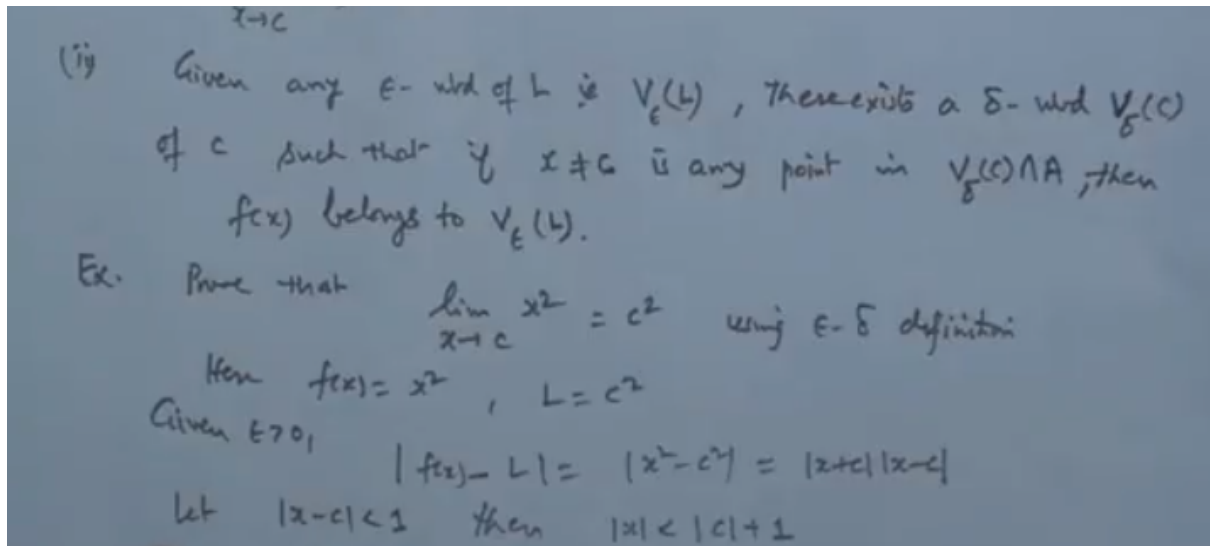 x→c
(ii) Given any ε- nbd of L ie V_ε(L), there exists a δ- nbd V_δ(c)
of c such that if x ≠ c is any point in V_δ(c)∩A, then
f(x) belongs to V_ε(L).
Ex. Prove that lim x→c x² = c² using ε-δ definition
Here f(x) = x², L = c²
Given ε>0,
|f(x) - L| = |x²-c²| = |x+c||x-c|
Let |x-c|<1 then |x| < |c|+1